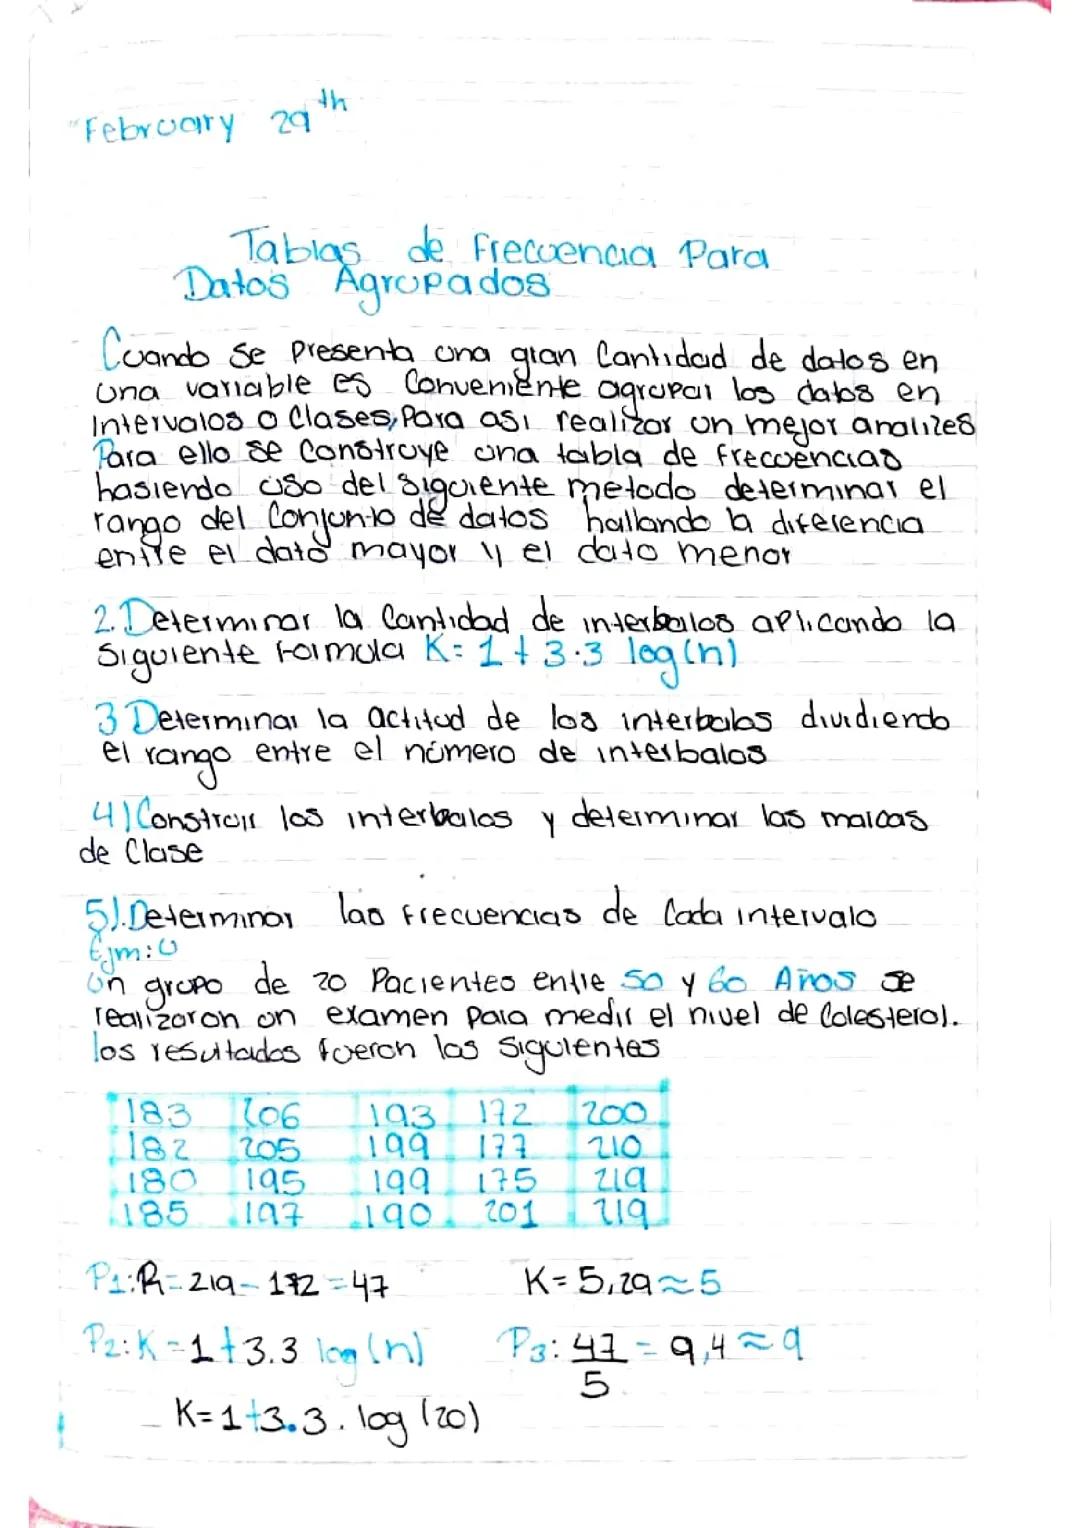 "February 29th
Tablas de Frecuencia Para
Datos Agrupados
Cuando se Presenta una gran Cantidad de datos en
una variable es Conveniente agrupar los datos en
Intervalos o Clases, Para asi realizar un mejor analizes
Para ello se Construye una tabla de frecuencias
hasiendo uso del siguiente metodo determinar el
rango del Conjunto de datos hallando la diferencia
entre el dato mayor y el dato menor
2. Determinar la Cantidad de interbalos aplicando la
siguiente formula K= 1 + 3.3 log(n)
3 Determinar la actitud de los interbalos dividiendo
el rango entre el número de interbalos
4) Construir los interbalos y determinar las marcas
de Clase
5). Determinar las frecuencias de Cada intervalo
Ejm:
Un grupo de 20 Pacientes entre 50 y 60 Años se
realizaron un examen para medir el nivel de Colesterol.
los resultados fueron las siguientes
183 206 193 172 200
182 205 199 177 210
180 195 199 175 219
185 197 190 201 219
P1: R= 219 - 172 = 47 K= 5,29 ≈ 5
P2: K = 1 + 3.3 log(n) P3: 47/5 = 9,4 ≈ 9
K= 1+3.3. log (20)